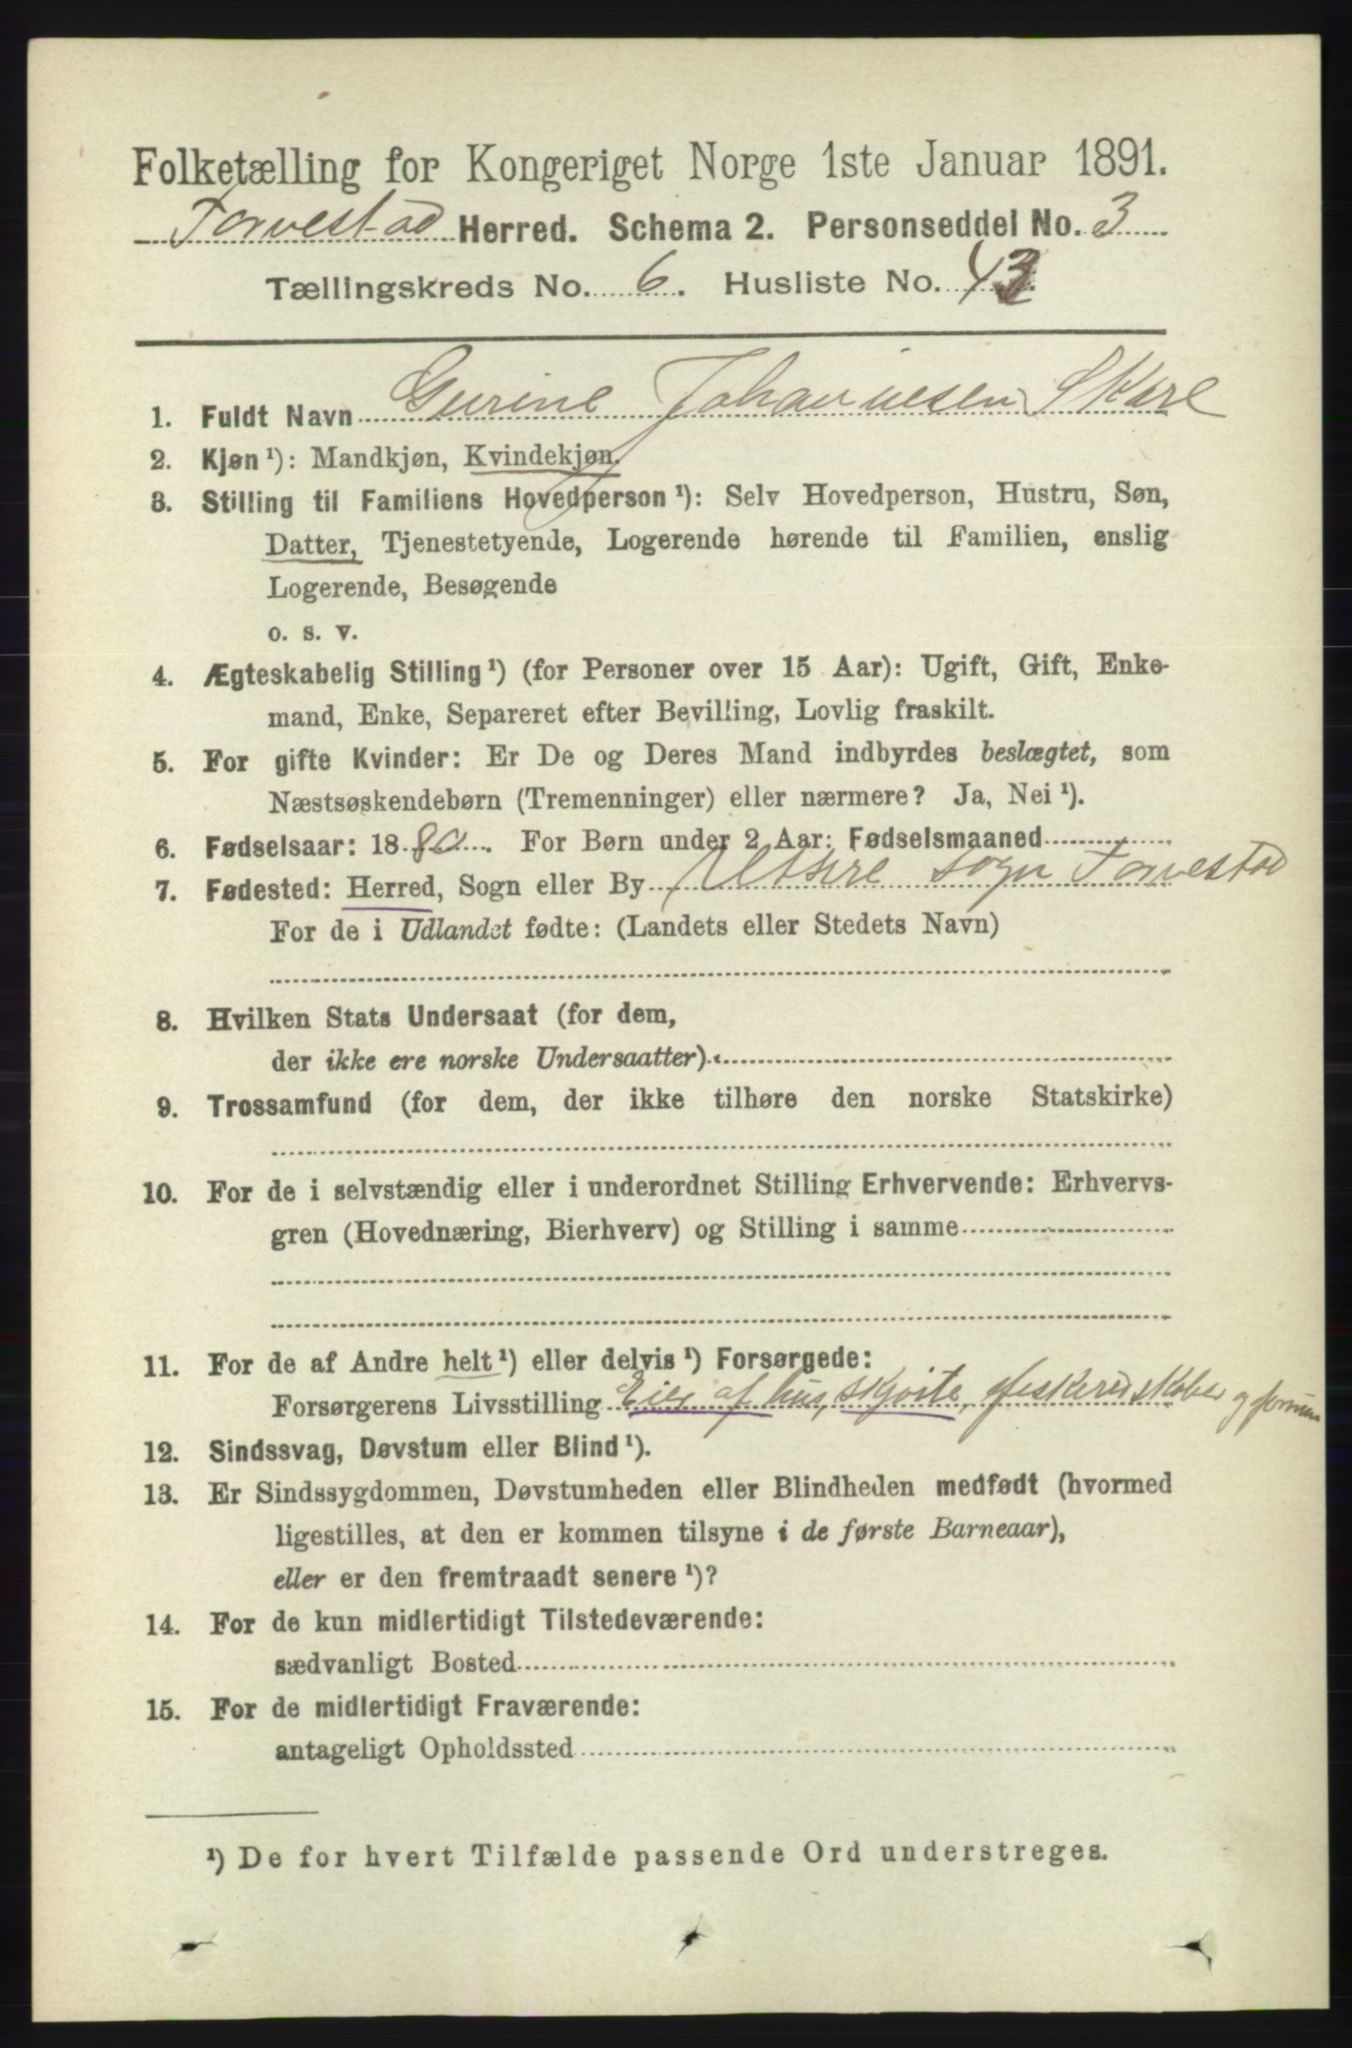 Folketælling for Kongeriget Norge 1ste Januar 1891.
Torvestad Herred. Schema 2. Personseddel No. 3
Tællingskreds No. 6. Husliste No. 43.
1. Fuldt Navn Gurine Johannesen Skare
2. Kjøn ¹): Mandkjøn, Kvindekjøn.
3. Stilling til Familiens Hovedperson ¹): Selv Hovedperson, Hustru, Søn,
Datter, Tjenestetyende, Logerende hørende til Familien, enslig
Logerende, Besøgende
o. s. v.
4. Ægteskabelig Stilling ¹) (for Personer over 15 Aar): Ugift, Gift, Enke-
mand, Enke, Separeret efter Bevilling, Lovlig fraskilt.
5. For gifte Kvinder: Er De og Deres Mand indbyrdes beslægtet, som
Næstsøskendebørn (Tremenninger) eller nærmere? Ja, Nei ¹).
6. Fødselsaar: 1880. For Børn under 2 Aar: Fødselsmaaned
7. Fødested: Herred, Sogn eller By Utsire sogn Torvestad
For de i Udlandet fødte: (Landets eller Stedets Navn)
8. Hvilken Stats Undersaat (for dem,
der ikke ere norske Undersaatter)
9. Trossamfund (for dem, der ikke tilhøre den norske Statskirke)
10. For de i selvstændig eller i underordnet Stilling Erhvervende: Erhvervs-
gren (Hovednæring, Bierhverv) og Stilling i samme
11. For de af Andre helt ¹) eller delvis ¹) Forsørgede:
Forsørgerens Livsstilling Eier af hus, skjøite, og
12. Sindssvag, Døvstum eller Blind ¹).
13. Er Sindssygdommen, Døvstumheden eller Blindheden medfødt (hvormed
ligestilles, at den er kommen tilsyne i de første Barneaar),
eller er den fremtraadt senere ¹)?
14. For de kun midlertidigt Tilstedeværende:
sædvanligt Bosted
15. For de midlertidigt Fraværende:
antageligt Opholdssted
¹) De for hvert Tilfælde passende Ord understreges.